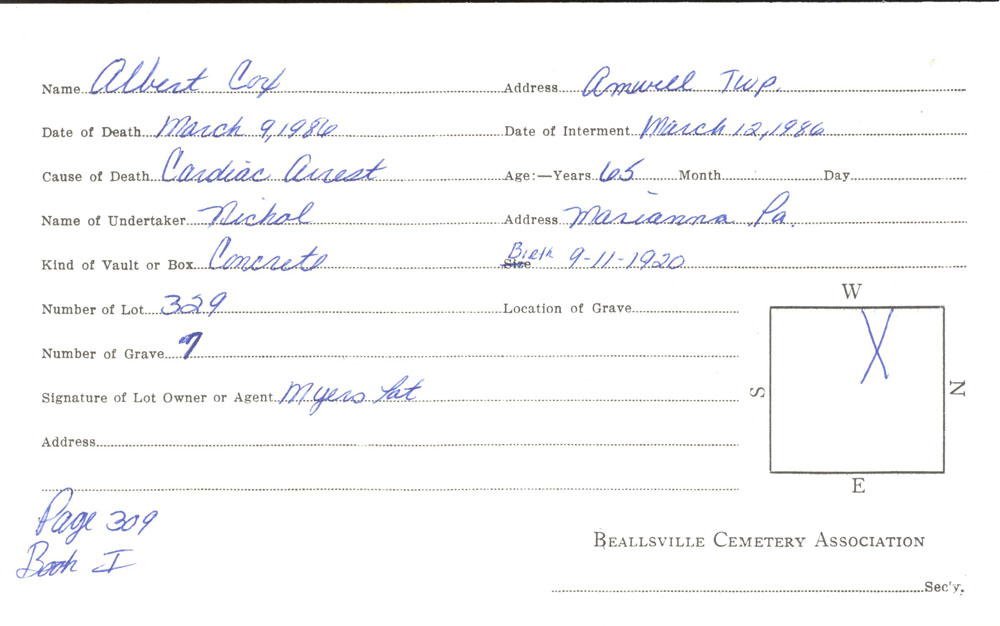 Name Albert Cox Address Amwell Twp.
Date of Death March 9, 1986 Date of Interment March 12, 1986
Cause of Death Cardiac Arrest Age:—Years 65 Month Day
Name of Undertaker Nichol Address Marianna Pa.
Kind of Vault or Box Concrete Size Birth 9-11-1920
Number of Lot 329 Location of Grave
W
Number of Grave 7
S N
Signature of Lot Owner or Agent Myers Lot
Address
E
Page 309
Book I
BEALLSVILLE CEMETERY ASSOCIATION
Sec'y.